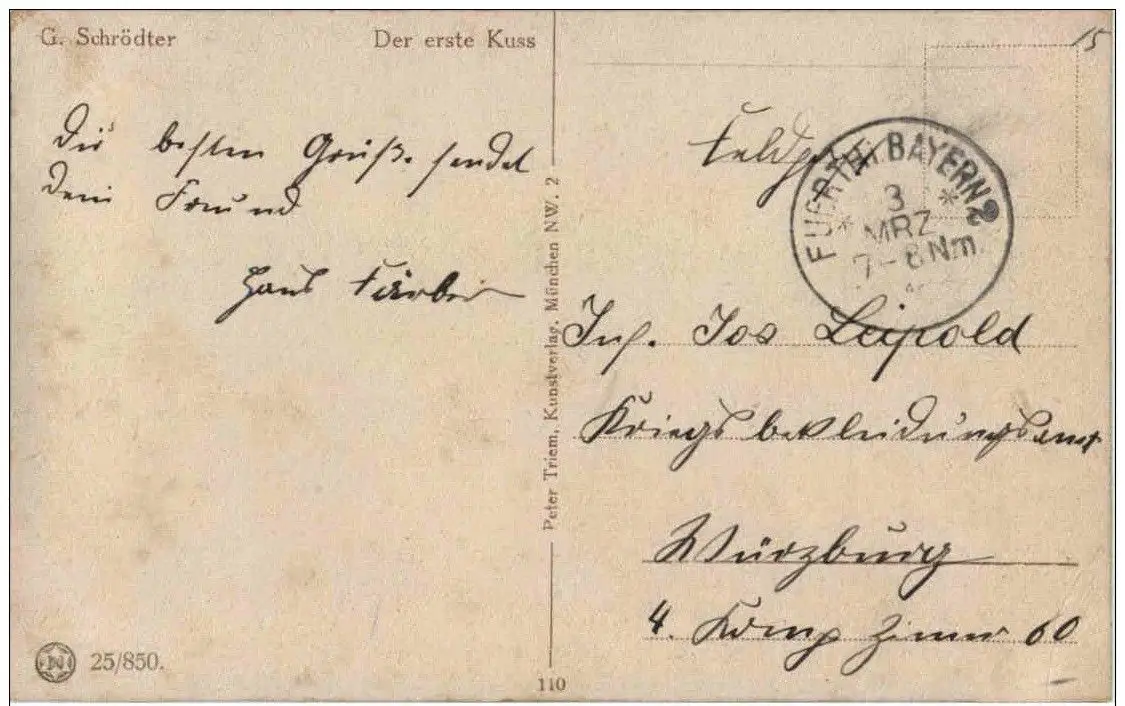 G. Schrödter
Der erste Kuss
Die besten Grüße sendet
Dein Freund
Hans Färber
Peter Triem, Kunstverlag, München NW. 2
15
Feldpost
FUERTH i. BAYERN 2
3
MRZ
7-8 Nm.
Inf. Jos Leipold
Kriegsbekleidungsamt
Würzburg
4. Komp Zimmer 60
25/850.
110